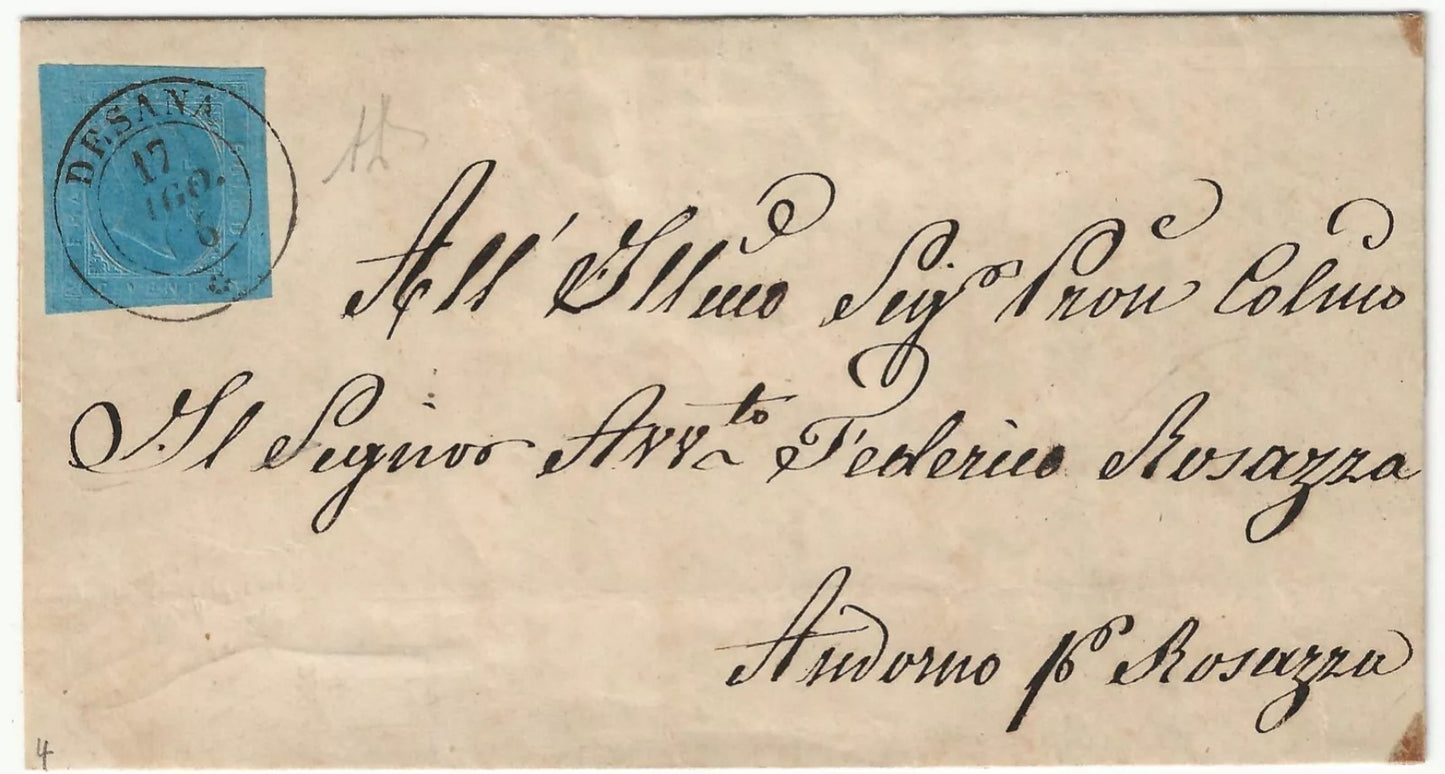 DESANA
17
AGO.
6
All' Illmo Sigr Pron Colmo
Il Signor Avvto Federico Rosazza
Andorno po Rosazza
4